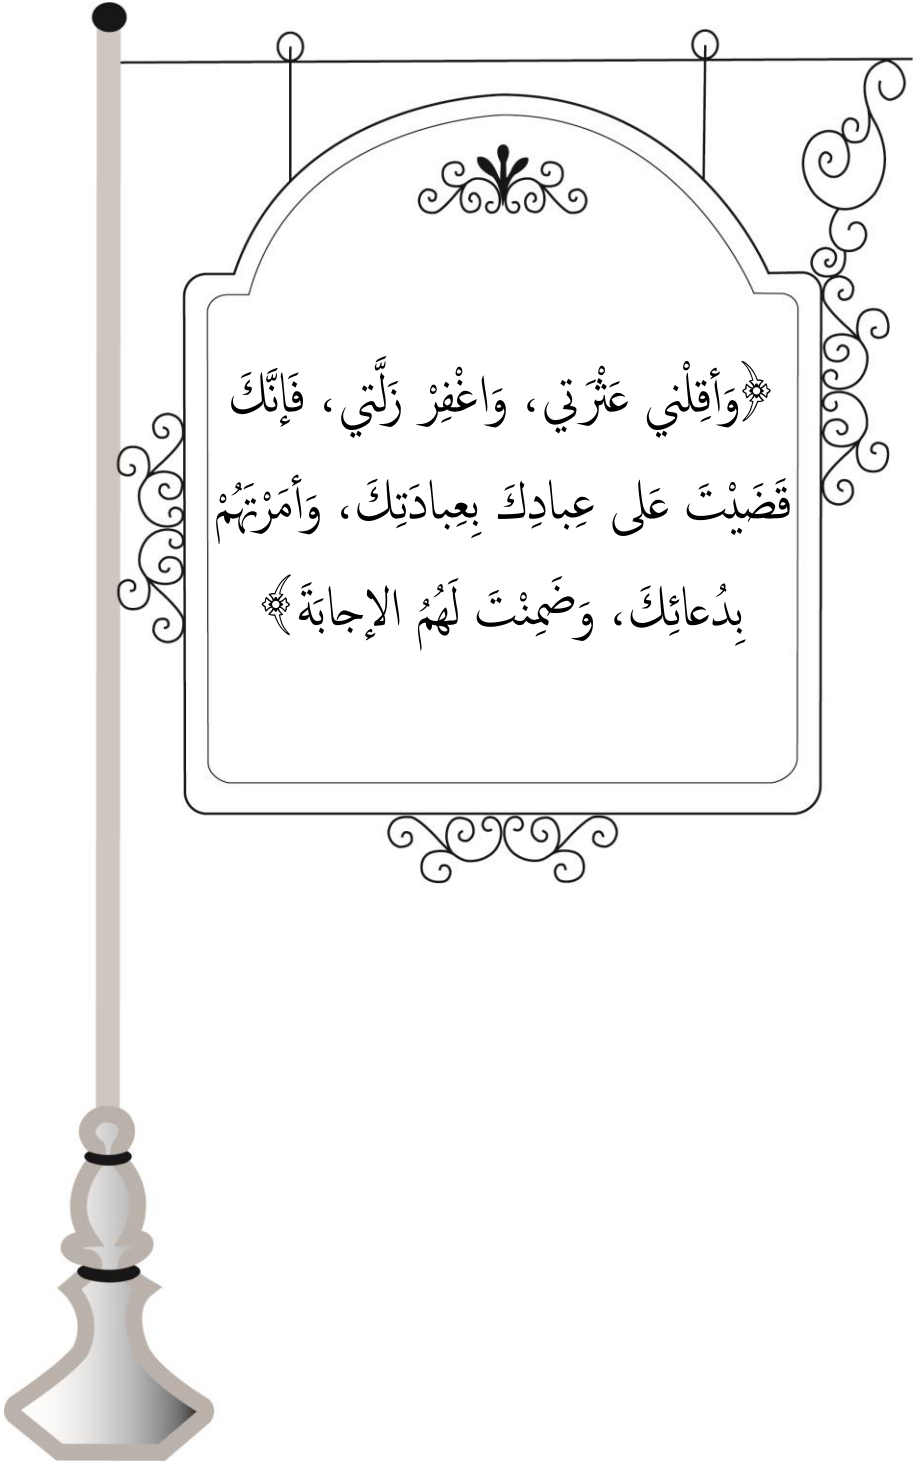 ﴿وَأقِلْني عَثْرَتي، وَاغْفِرْ زَلَّتي، فَإنَّكَ
قَضَيْتَ عَلى عِبادِكَ بِعِبادَتِكَ، وَأمَرْتَهُمْ
بِدُعائِكَ، وَضَمِنْتَ لَهُمُ الإجابَةَ﴾